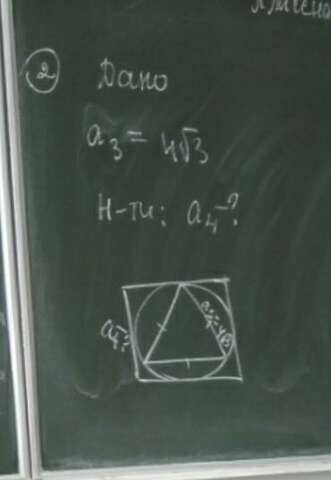 2 Дано
a₃ = 4√3
Н-ти: a₄-?
a₄-?